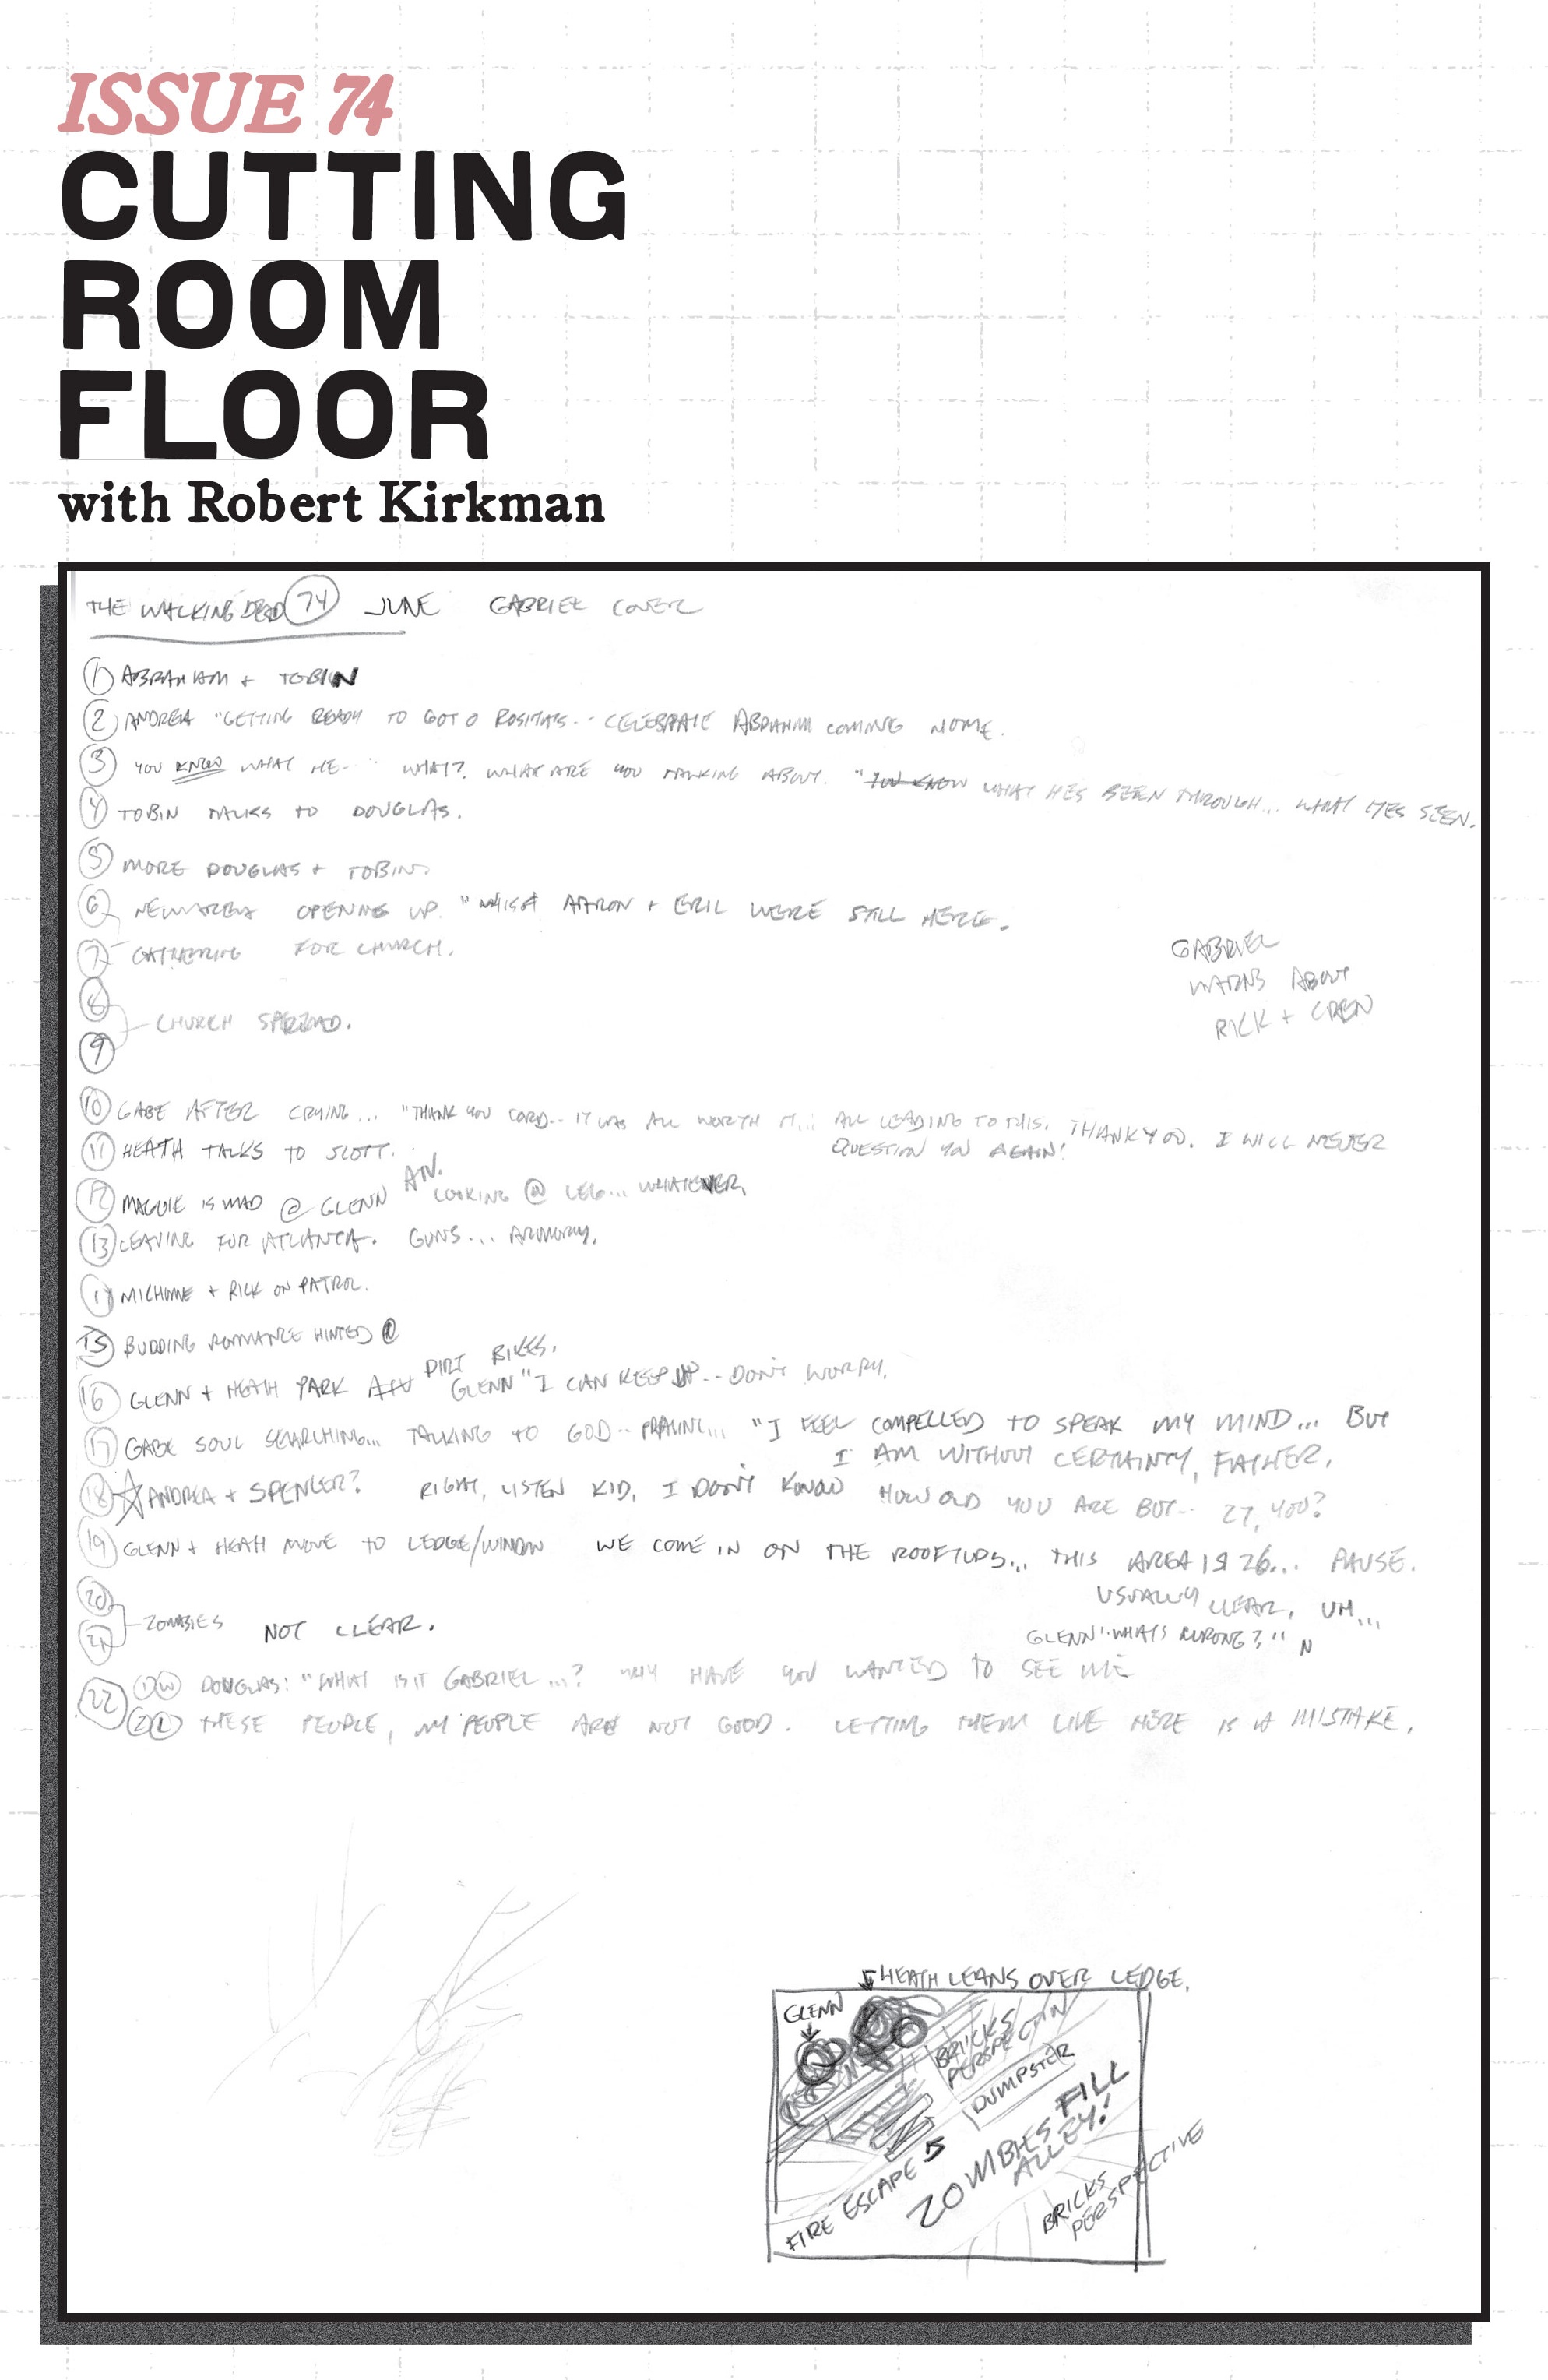 ISSUE 74
CUTTING
ROOM
FLOOR
with Robert Kirkman
THE WALKING DEAD 74 JUNE GABRIEL COVER
1 ABRAHAM + TOBIN
2 ANDREA "GETTING READY TO GOTO ROSITA'S.. CELEBRATE ABRAHAM COMING HOME.
3 YOU KNOW WHAT HE.." WHAT? WHAT ARE YOU TALKING ABOUT. "YOU KNOW WHAT HES BEEN THROUGH... WHAT HES SEEN.
4 TOBIN TALKS TO DOUGLAS.
5 MORE DOUGLAS + TOBIN.
6 NEW AREA OPENING UP. AARON + ERIC WERE STILL HERE.
7 GATHERING FOR CHURCH.
GABRIEL
WARNS ABOUT
RICK + CREW
8
CHURCH SPREAD.
9
10 GABE AFTER CRYING... "THANK YOU LORD.. IT WAS ALL WORTH IT... ALL LEADING TO THIS. THANK YOU. I WILL NEVER
QUESTION YOU AGAIN!
11 HEATH TALKS TO SCOTT.
12 MAGGIE IS MAD @ GLENN ATV. LOOKING @ LEG... WHATEVER.
13 LEAVING FOR ATLANTA. GUNS... ARMORY.
14 MICHONNE + RICK ON PATROL.
15 BUDDING ROMANCE HINTED @
DIRT BIKES.
16 GLENN + HEATH PARK ATV GLENN "I CAN KEEP UP.. DON'T WORRY.
17 GABE SOUL SEARCHING... TALKING TO GOD.. PRAYING... "I FEEL COMPELLED TO SPEAK MY MIND... BUT
I AM WITHOUT CERTAINTY, FATHER.
18 ☆ ANDREA + SPENCER? RIGHT, LISTEN KID, I DON'T KNOW HOW OLD YOU ARE BUT.. 27, YOU?
19 GLENN + HEATH MOVE TO LEDGE/WINDOW WE COME IN ON THE ROOFTOPS... THIS AREA IS PAUSE.
USUALLY CLEAR, UH...
GLENN! WHATS WRONG?"
20
21 ZOMBIES NOT CLEAR.
22 1W DOUGLAS: "WHAT IS IT GABRIEL...? WHY HAVE YOU WANTED TO SEE ME
2L THESE PEOPLE, MY PEOPLE ARE NOT GOOD. LETTING THEM LIVE HERE IS A MISTAKE.
HEATH LEANS OVER LEDGE.
GLENN
BRICKS
DUMPSTER
ZOMBIES FILL
ALLEY!
FIRE ESCAPE
BRICKS
PERSPECTIVE